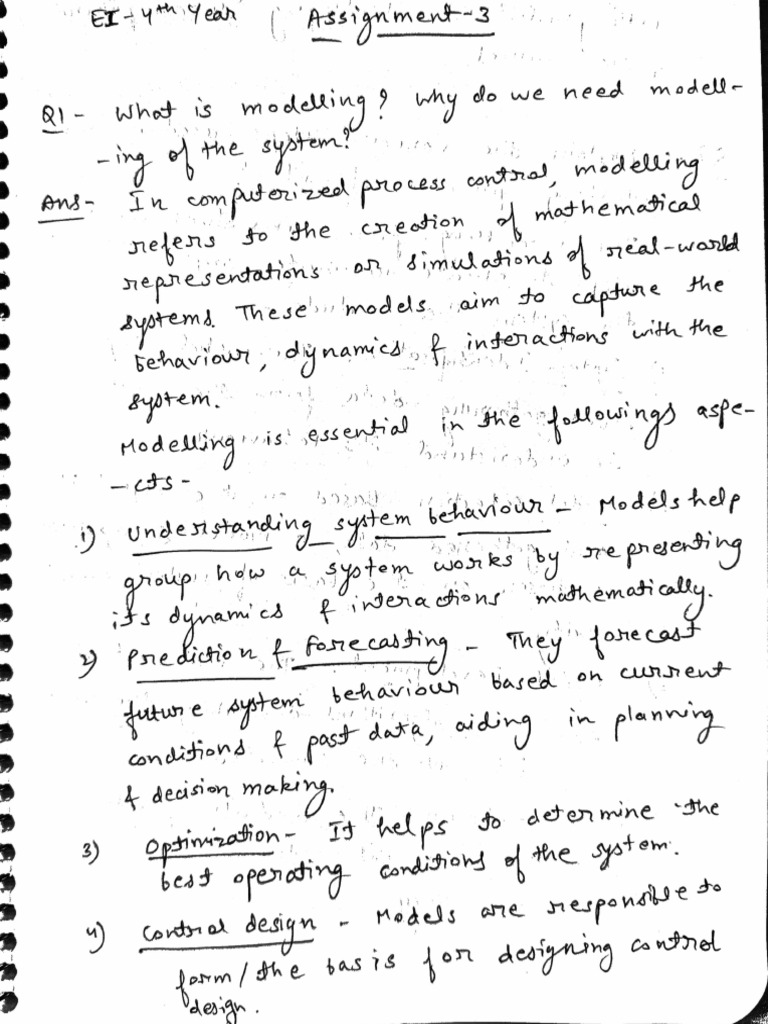 EI-4th Year Assignment-3
Q1- What is modelling? Why do we need modell-
-ing of the system?
Ans- In computerized process control, modelling
refers to the creation of mathematical
representations or simulations of real-world
systems. These models aim to capture the
behaviour, dynamics & interactions with the
system.
Modelling is essential in the followings aspe-
-cts-
1) Understanding system behaviour - Models help
group how a system works by representing
its dynamics & interactions mathematically.
2) Prediction & Forecasting - They forecast
future system behaviour based on current
conditions & past data, aiding in planning
& decision making.
3) Optimization - It helps to determine the
best operating conditions of the system.
4) Control design - Models are responsible to
form / the basis for designing control
design.